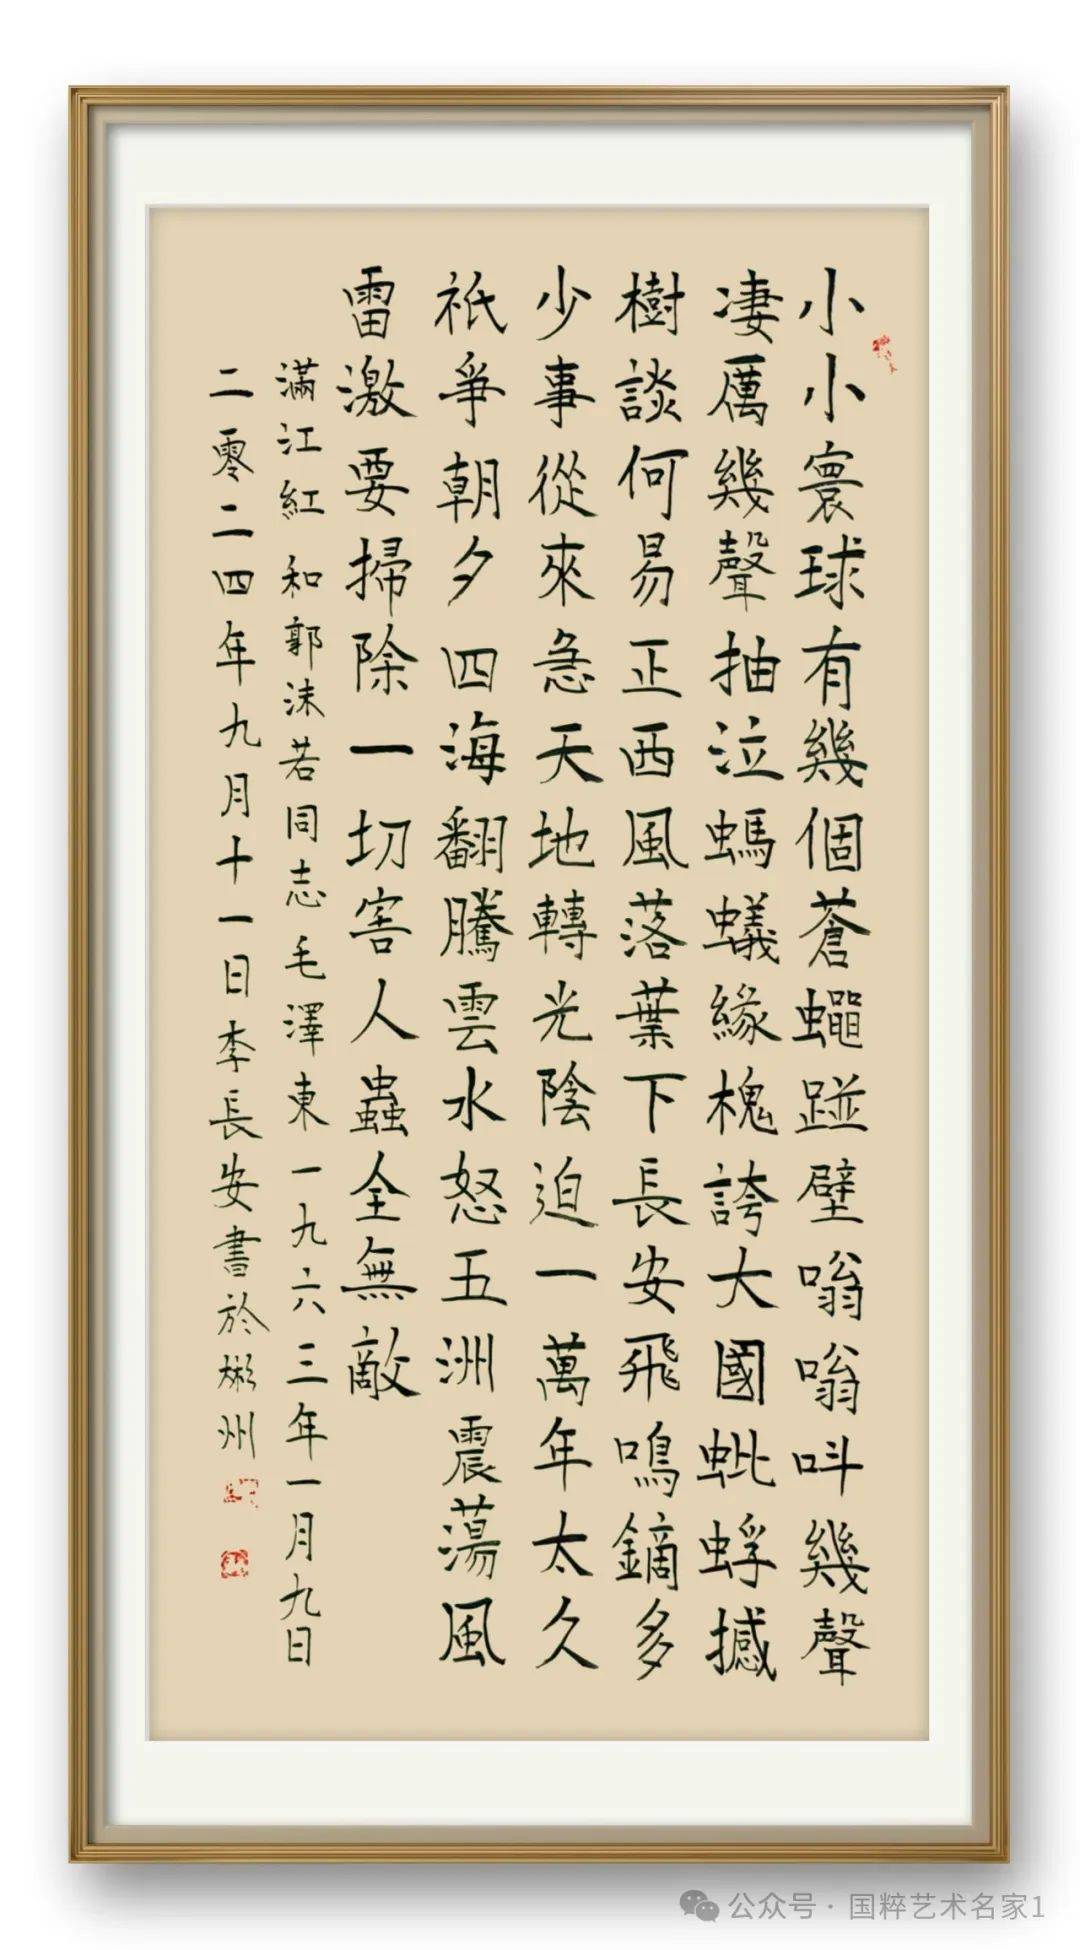 小小寰球有幾個蒼蠅踫壁嗡嗡呌幾聲
凄厲幾聲抽泣螞蟻緣槐誇大國蚍蜉撼
樹談何易正西風落葉下長安飛鳴鏑多
少事從來急天地轉光陰迫一萬年太久
祇爭朝夕四海翻騰雲水怒五洲震蕩風
雷激要掃除一切害人蟲全無敵
滿江紅和郭沫若同志毛澤東一九六三年一月九日
二零二四年九月十一日李長安書於彬州
公众号·国粹艺术名家1